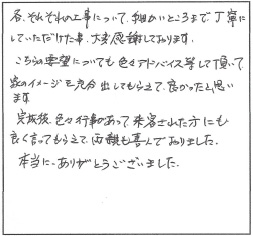 各、それぞれの工事について、細かいところまで、丁寧に
していただけた事、大変感謝しております。
こちらの要望についても色々アドバイス等して頂いて
家のイメージを充分出してもらえて、良かったと思い
ます
完成後、色々行事があって来客された方にも
良く言ってもらえて、両親も喜んでおりました。
本当に、ありがとうございました。